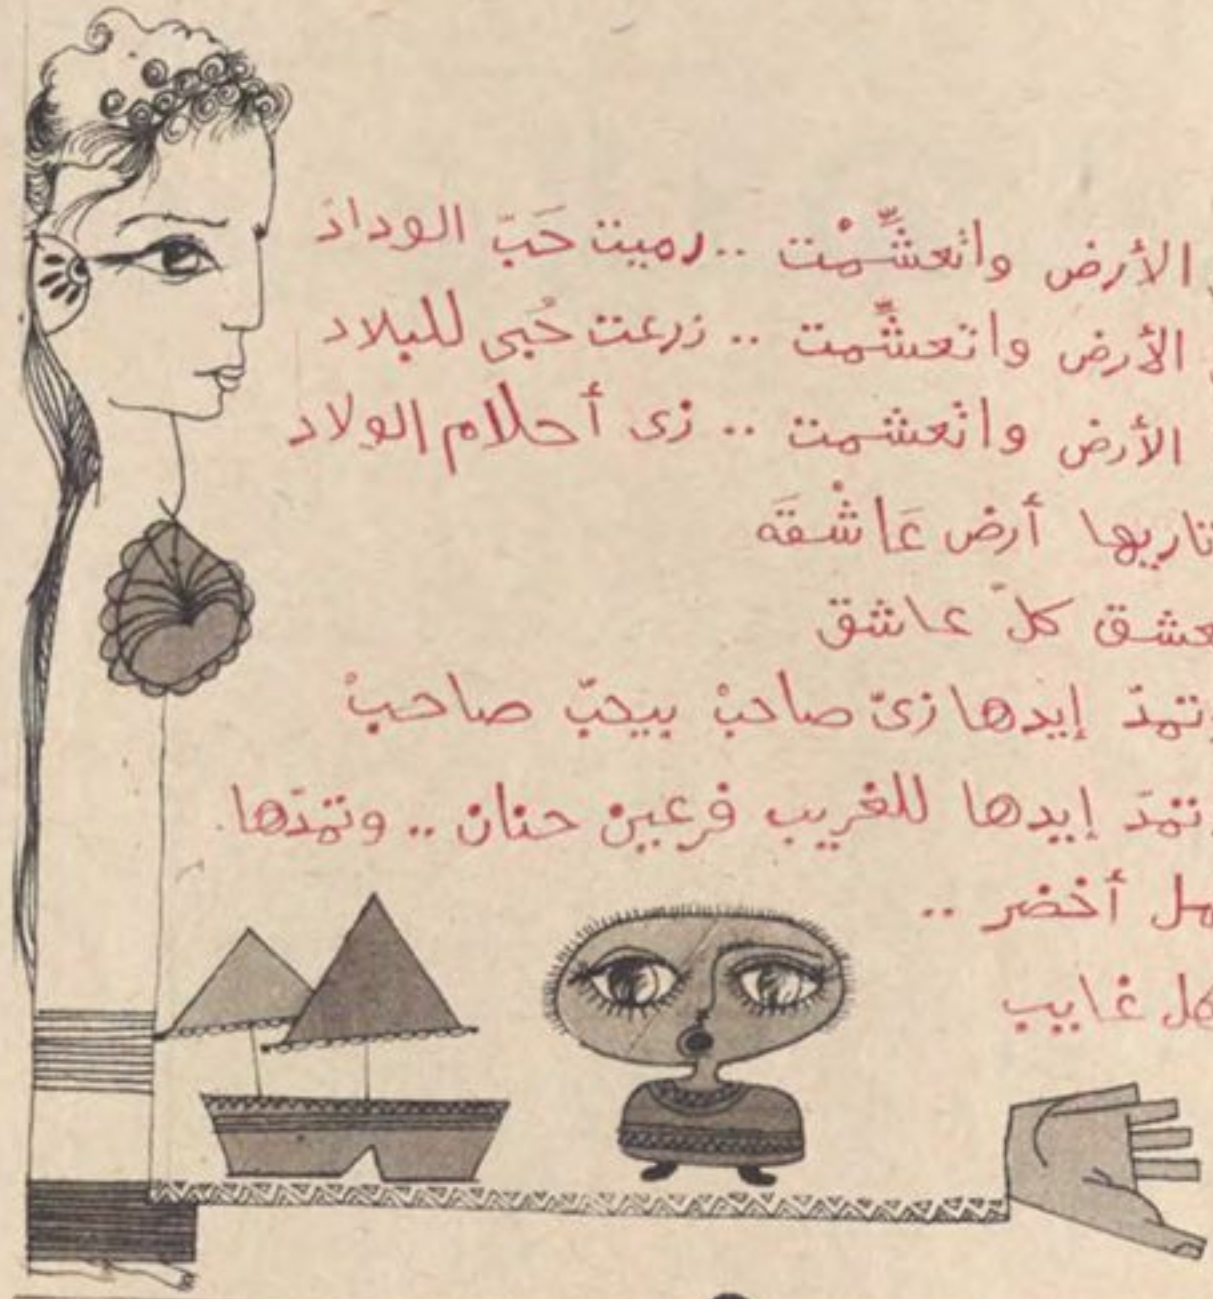 الأرض واتعشِّمْت .. رميت حَبّ الوداد
الأرض واتعشِّمت .. زرعت حُبى للبلاد
الأرض واتعشمت .. زى أحلام الولاد
تاريها أرض عَاشْقَه
كلّ عاشق
تمدّ إيدها زىّ صاحبْ بيحبّ صاحبْ
تمدّ إيدها للغريب فرعين حنان .. وتمدّها
أخضر ..
غايب